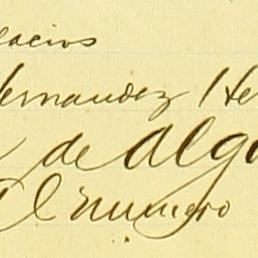 lacios
Hernandez He
de algo
El numero